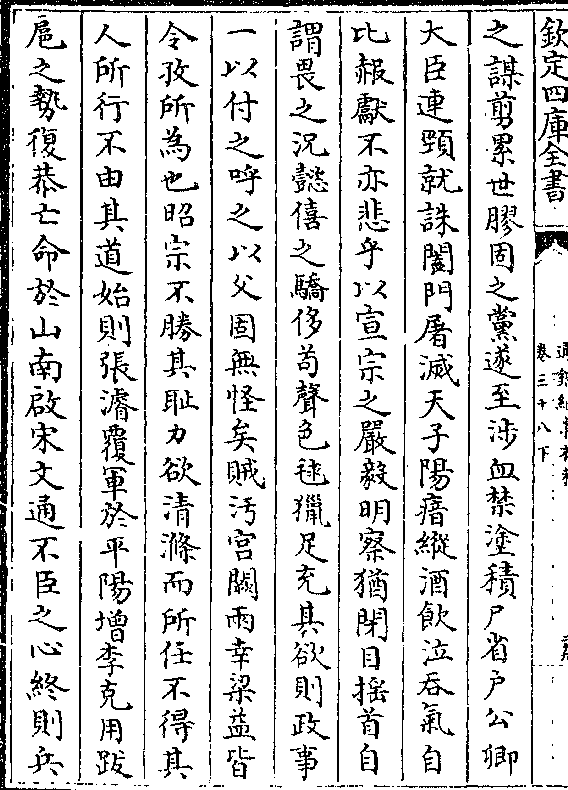 欽定四庫全書
卷三十八下
之謀剪累世膠固之黨遂至涉血禁塗積尸省戸公卿
大臣連頸就誅闔門屠滅天子陽瘖縱酒飲泣吞氣自
比赧獻不亦悲乎以宣宗之嚴毅明察猶閉目揺首自
謂畏之況懿僖之驕侈苟聲色毬獵足充其欲則政事
一以付之呼之以父固無怪矣賊汚宫闕兩幸梁益皆
令孜所為也昭宗不勝其耻力欲清滌而所任不得其
人所行不由其道始則張濬覆軍於平陽增李克用跋
扈之勢復恭亡命於山南啟宋文通不臣之心終則兵